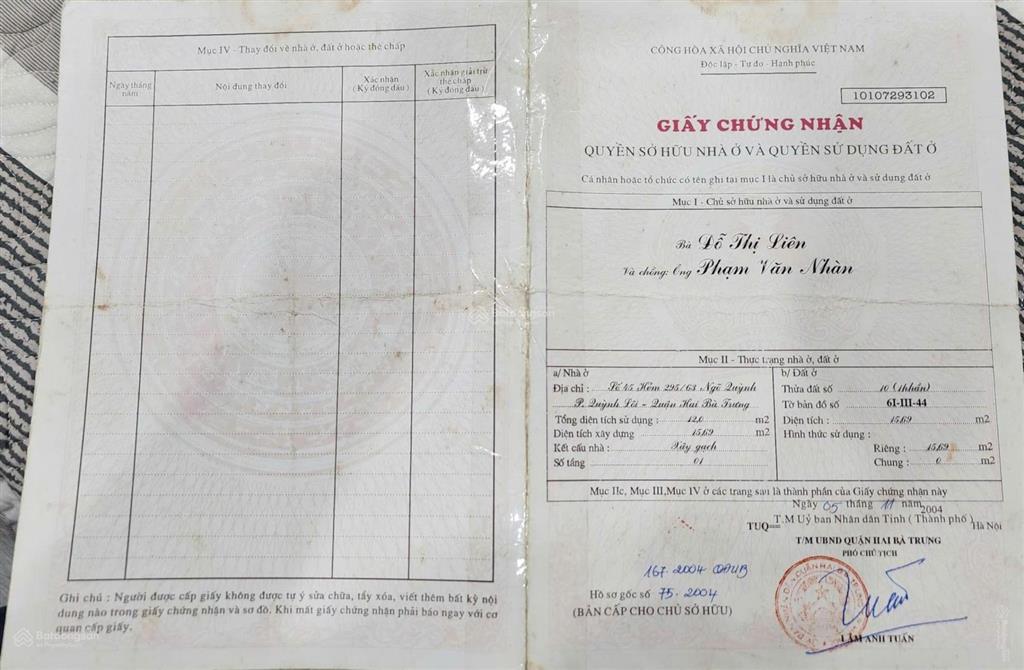 Mục IV - Thay đổi về nhà ở, đất ở hoặc thế chấp
Ngày tháng năm
Nội dung thay đổi
Xác nhận
(Ký đóng dấu)
Xác nhận giải trừ thế chấp
(Ký đóng dấu)
Ghi chú : Người được cấp giấy không được tự ý sửa chữa, tẩy xóa, viết thêm bất kỳ nội
dung nào trong giấy chứng nhận và sơ đồ. Khi mất giấy chứng nhận phải báo ngay với cơ
quan cấp giấy.
CỘNG HÒA XÃ HỘI CHỦ NGHĨA VIỆT NAM
Độc lập - Tự do - Hạnh phúc
10107293102
GIẤY CHỨNG NHẬN
QUYỀN SỞ HỮU NHÀ Ở VÀ QUYỀN SỬ DỤNG ĐẤT Ở
Cá nhân hoặc tổ chức có tên ghi tại mục I là chủ sở hữu nhà ở và sử dụng đất ở
Mục I - Chủ sở hữu nhà ở và sử dụng đất ở
Bà Đỗ Thị Liên
Và chồng: Ông Phạm Văn Nhàn
Mục II - Thực trạng nhà ở, đất ở
a/ Nhà ở
Địa chỉ : Số 45 Hẻm 295/63 Ngõ Quỳnh
P. Quỳnh Lôi - Quận Hai Bà Trưng
Tổng diện tích sử dụng : 12,0 m2
Diện tích xây dựng : 15,69 m2
Kết cấu nhà : Xây gạch
Số tầng : 01
b/ Đất ở
Thửa đất số : 10 (1phần)
Tờ bản đồ số : 6I-III-44
Diện tích : 15,69 m2
Hình thức sử dụng :
Riêng : 15,69 m2
Chung : 0 m2
Mục IIc, Mục III,Mục IV ở các trang sau là thành phần của Giấy chứng nhận này
Ngày 05 tháng 11 năm 2004
TUQ T.M Uỷ ban Nhân dân Tỉnh ( Thành phố ) Hà Nội
T/M UBND QUẬN HAI BÀ TRƯNG
PHÓ CHỦ TỊCH
167.2004 QĐUB
Hồ sơ gốc số 75-2004
(BẢN CẤP CHO CHỦ SỞ HỮU)
LÂM ANH TUẤN
Batdongsan